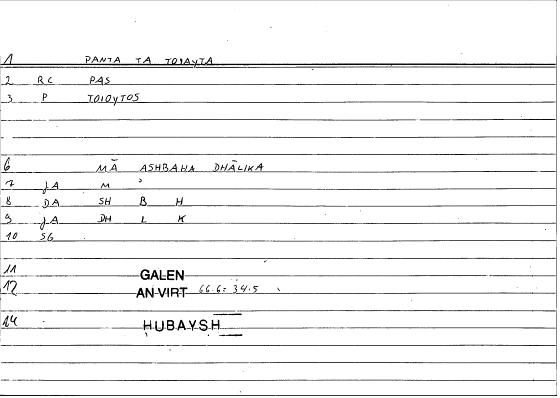 1 PANTA TA TOIAYTA
2 RC PAS
3 P TOIOYTOS
6 MĀ ASHBAHA DHĀLIKA
7 JA M ʾ
8 DA SH B H
9 JA DH L K
10 SG
11 GALEN
12 AN VIRT 66.6= 34.5
14 HUBAYSH